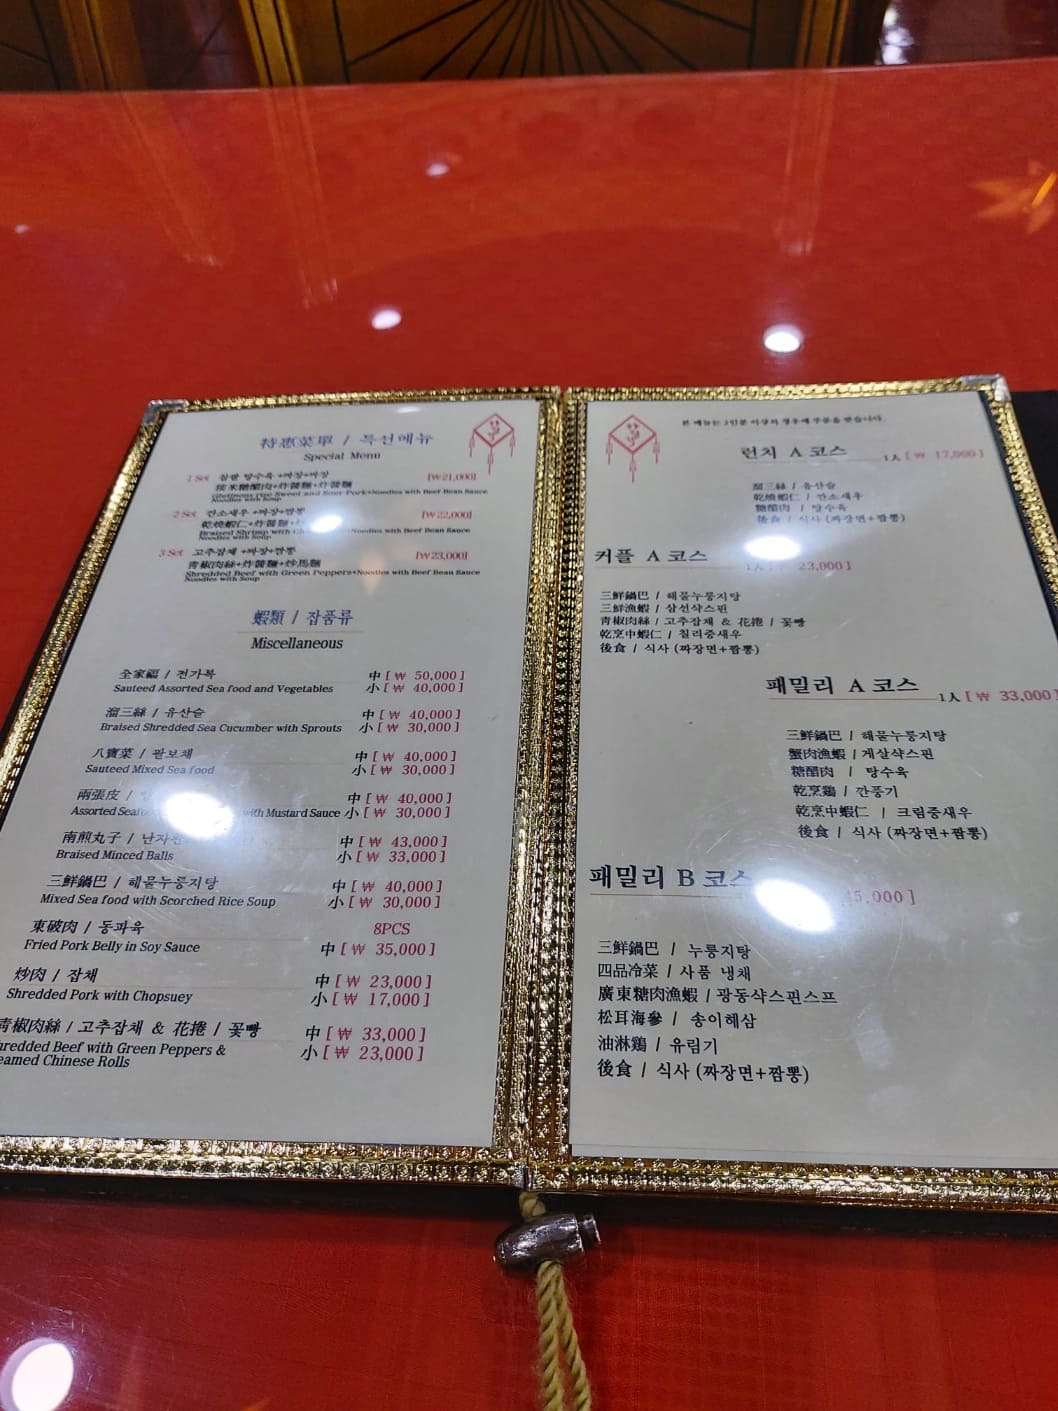 特惠菜單 / 특선메뉴
Special Menu
1 Set 찹쌀 탕수육 +짜장+짜장 [₩21,000]
糯米糖醋肉+炸醬麵+炸醬麵
Glutinous rice Sweet and Sour Pork+Noodles with Beef Bean Sauce
Noodles with Soup
2 Set 깐소새우 +짜장+짬뽕 [₩22,000]
乾燒蝦仁+炸醬麵+
Braised Shrimp with Noodles with Beef Bean Sauce
Noodles with Soup
3 Set 고추잡채 +짜장+짬뽕 [₩23,000]
靑椒肉絲+炸醬麵+炒馬麵
Shredded Beef with Green Peppers+Noodles with Beef Bean Sauce
Noodles with Soup
蝦類 / 잡품류
Miscellaneous
全家福 / 전가복 中 [ ₩ 50,000 ]
Sauteed Assorted Sea food and Vegetables 小 [ ₩ 40,000 ]
溜三絲 / 유산슬 中 [ ₩ 40,000 ]
Braised Shredded Sea Cucumber with Sprouts 小 [ ₩ 30,000 ]
八寶菜 / 팔보채 中 [ ₩ 40,000 ]
Sauteed Mixed Sea food 小 [ ₩ 30,000 ]
兩張皮 / 中 [ ₩ 40,000 ]
Assorted with Mustard Sauce 小 [ ₩ 30,000 ]
南煎丸子 / 난자완 中 [ ₩ 43,000 ]
Braised Minced Balls 小 [ ₩ 33,000 ]
三鮮鍋巴 / 해물누룽지탕 中 [ ₩ 40,000 ]
Mixed Sea food with Scorched Rice Soup 小 [ ₩ 30,000 ]
東破肉 / 동파육 8PCS
Fried Pork Belly in Soy Sauce 中 [ ₩ 35,000 ]
炒肉 / 잡채 中 [ ₩ 23,000 ]
Shredded Pork with Chopsuey 小 [ ₩ 17,000 ]
靑椒肉絲 / 고추잡채 & 花捲 / 꽃빵 中 [ ₩ 33,000 ]
hredded Beef with Green Peppers & 小 [ ₩ 23,000 ]
eamed Chinese Rolls
본 메뉴는 2인분 이상의 경우에 주문을 받습니다.
런치 A 코스 1人 [ ₩ 17,000 ]
溜三絲 / 유산슬
乾燒蝦仁 / 깐소새우
糖醋肉 / 탕수육
後食 / 식사 (짜장면+짬뽕)
커플 A 코스 1人 23,000 ]
三鮮鍋巴 / 해물누룽지탕
三鮮漁蝦 / 삼선샥스핀
靑椒肉絲 / 고추잡채 & 花捲 / 꽃빵
乾烹中蝦仁 / 칠리중새우
後食 / 식사 (짜장면+짬뽕)
패밀리 A 코스 1人 [ ₩ 33,000 ]
三鮮鍋巴 / 해물누룽지탕
蟹肉漁蝦 / 게살샥스핀
糖醋肉 / 탕수육
乾烹鶏 / 깐풍기
乾烹中蝦仁 / 크림중새우
後食 / 식사 (짜장면+짬뽕)
패밀리 B 코스 45,000 ]
三鮮鍋巴 / 누룽지탕
四品冷菜 / 사품 냉채
廣東糖肉漁蝦 / 광동샥스핀스프
松耳海參 / 송이해삼
油淋鶏 / 유림기
後食 / 식사 (짜장면+짬뽕)